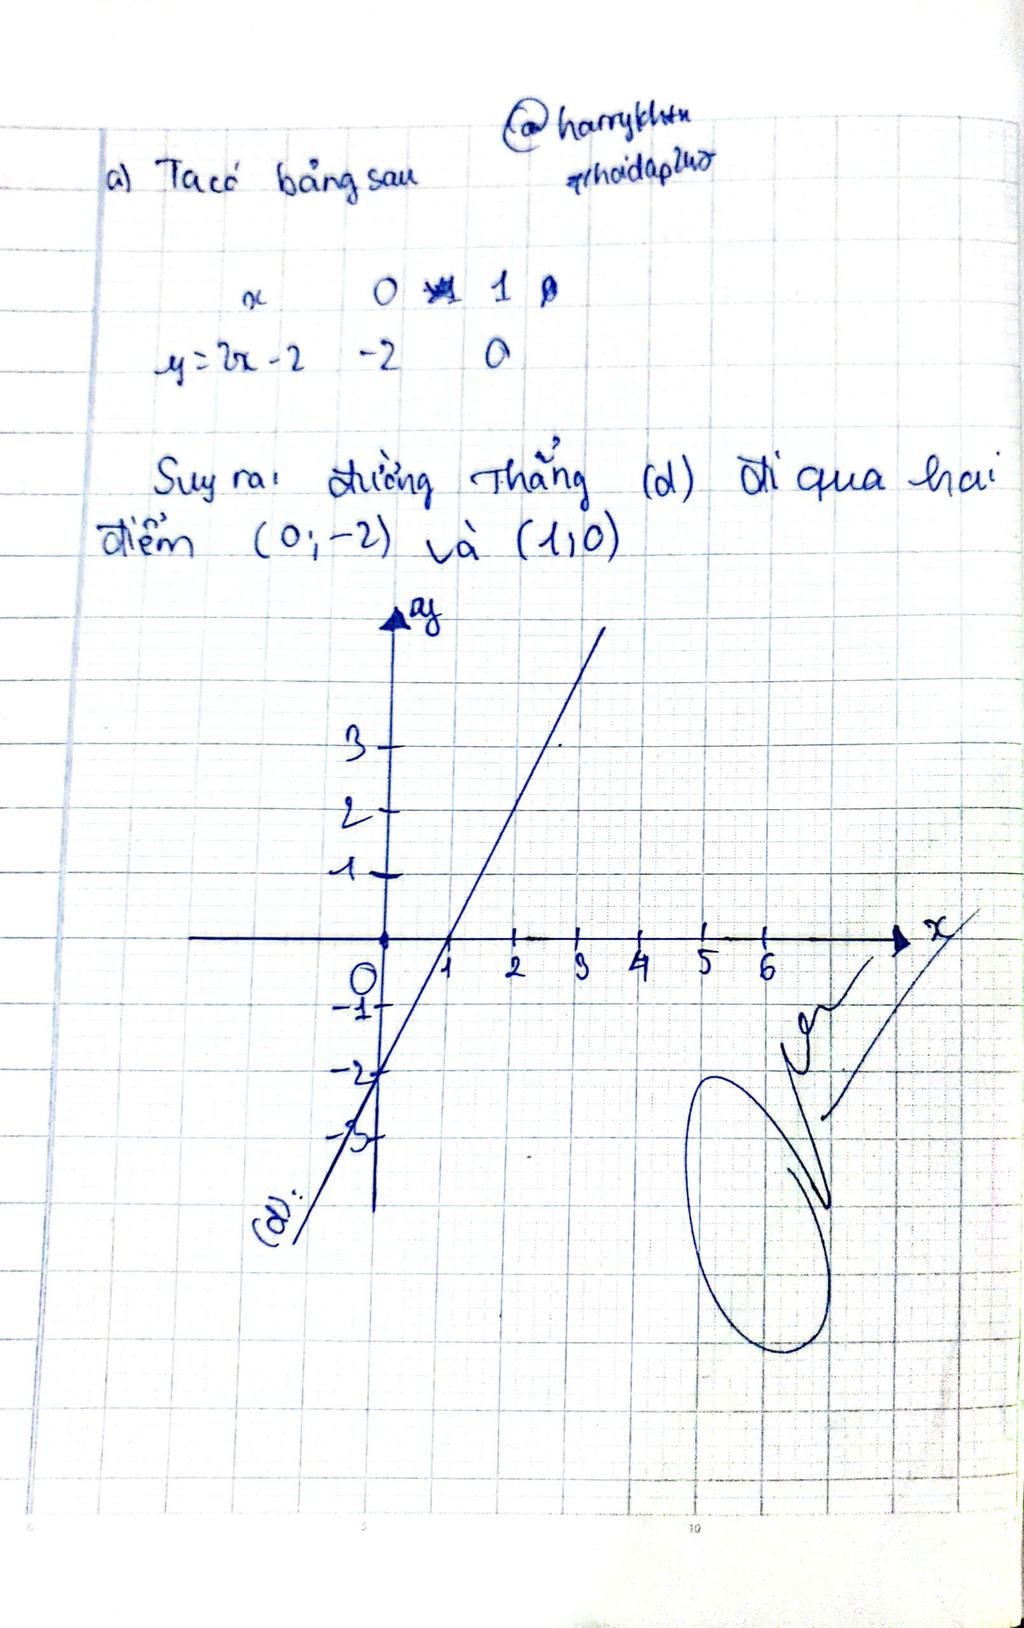 @harrykhtn
a) Ta có bảng sau
x 0 1
y = 2x - 2 -2 0
Suy ra: đường thẳng (d) đi qua hai
điểm (0; -2) và (1; 0)
y
3
2
1
x
O 1 2 3 4 5 6
-1
-2
-3
(d)
5 10